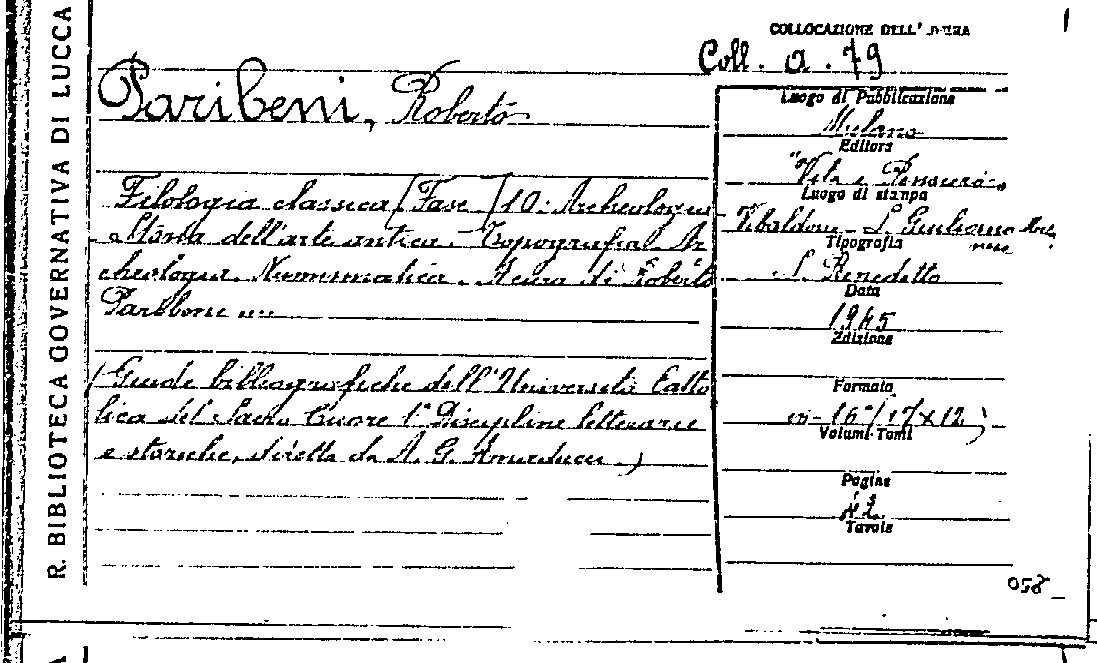 R. BIBLIOTECA GOVERNATIVA DI LUCCA
COLLOCAZIONE DELL'
Coll. a. 79
Paribeni, Roberto
Filologia classica (Fasc /10: Archeologia
Storia dell'arte antica. Topografia Ar
cheologia Numismatica. di Roberto
Paribene ....
(Guide bibliografiche dell'Università Catto
lica del Sacro Cuore 1° Discipline letterarie
e storiche, diretta da A. G. )
Luogo di Pubblicazione
Milano
Editore
"Vita e Pensiero"
Luogo di stampa
Vibaldone - S. Giuliano
Tipografia
S. Benedetto
Data
1945
Edizione
Formato
in-16° (17x12)
Volumi-Tomi
Pagine
Tavole
058